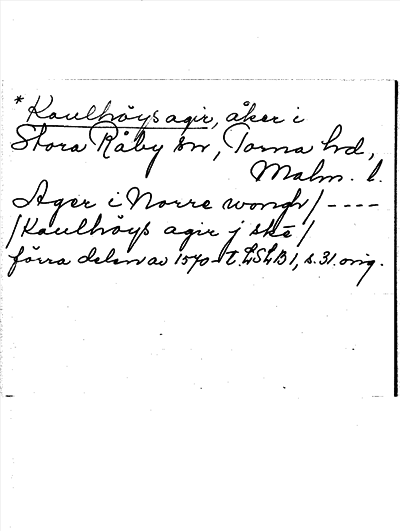 *Kaulhöys agir, åker i
Stora Råby sn, Torna hd,
Malm. l.
Ager i Norre wongh / ----
/ Kaulhöys agir j skē /
förra delen av 1570-t. LSLB 1, s. 31. orig.